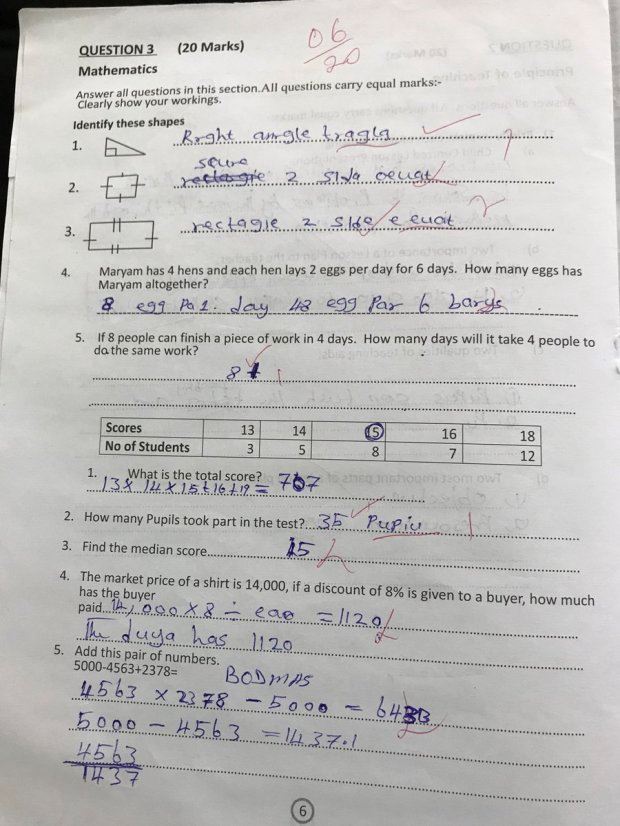 QUESTION 3 (20 Marks)
06/20
Mathematics
Answer all questions in this section.All questions carry equal marks:-
Clearly show your workings.
Identify these shapes
1. Rrght amgle tragla
scure
2. rectagie 2 Sida oeuat
3. rectagie 2 side e euait
4. Maryam has 4 hens and each hen lays 2 eggs per day for 6 days. How many eggs has
Maryam altogether?
8 egg Pa 1. day 48 egg Par 6 barys
5. If 8 people can finish a piece of work in 4 days. How many days will it take 4 people to
do the same work?
8
Scores 13 14 15 16 18
No of Students 3 5 8 7 12
1. What is the total score?
13x 14 x 15 + 16 + 19 = 707
2. How many Pupils took part in the test? 35 Pupiu
3. Find the median score 15
4. The market price of a shirt is 14,000, if a discount of 8% is given to a buyer, how much
has the buyer
paid 14,000 x 8 ÷ = 1120
The duya has 1120
5. Add this pair of numbers.
5000-4563+2378= BODMAS
4563 x 2378 - 5000 =
5000 - 4563 = 1437.1
4563
1437
6